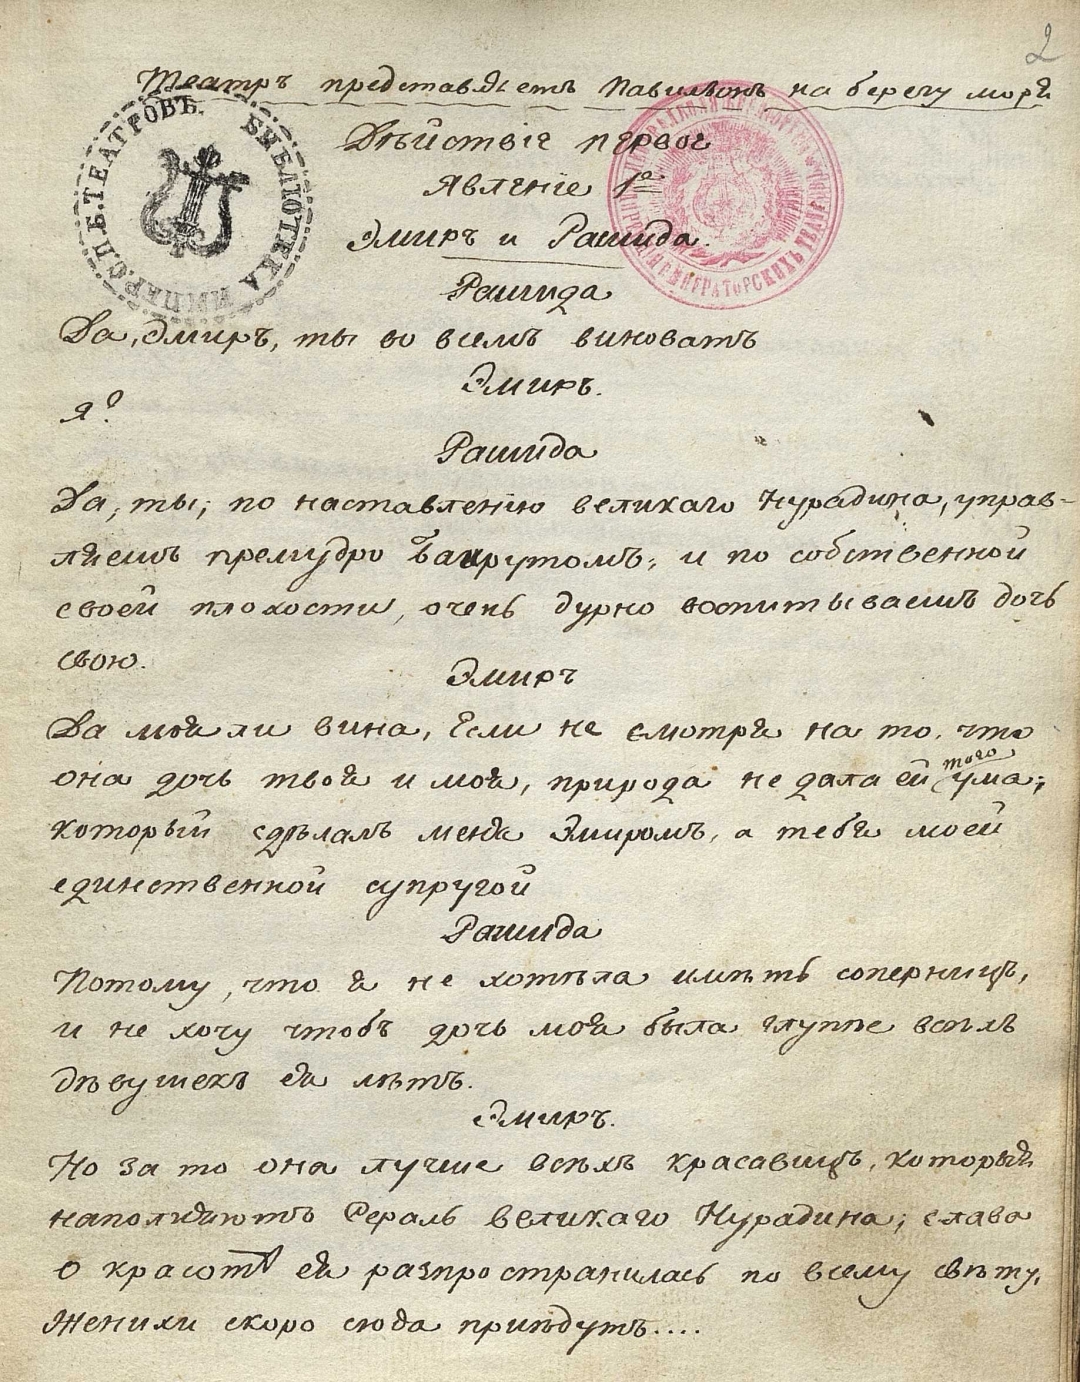 2
Театръ представляетъ Павильонъ на берегу моря
Дѣйствіе первое
Явленіе 1е
Эмиръ и Рашида.
БИБЛІОТЕКА ИМПЕР. С.П.Б. ТЕАТРОВЪ.
Рашида
Да, Эмиръ, ты во всемъ виноватъ
Эмиръ.
Я?
Рашида
Да, ты; по наставленію великаго Нурадина, управ-
ляешъ премудро Бакрутомъ; и по собственной
своей плохости, очень дурно воспитываешъ дочь
свою.
Эмиръ
Да моя ли вина, если не смотря на то, что
она дочь твоя и моя, природа не дала ей того ума;
который сдѣлалъ меня Эмиромъ, а тебя моей
единственной супругой
Рашида
Потому, что я не хотѣла имѣть соперницъ,
и не хочу чтобъ дочь моя была глуппе всѣхъ
дѣвушекъ ея лѣтъ.
Эмиръ.
Но за то она лучше всѣхъ красавицъ, которыя
наполняютъ Сераль великаго Нурадина; слава
о красотѣ ея разпространилась по всему свѣту,
Женихи скоро сюда пріѣдутъ....